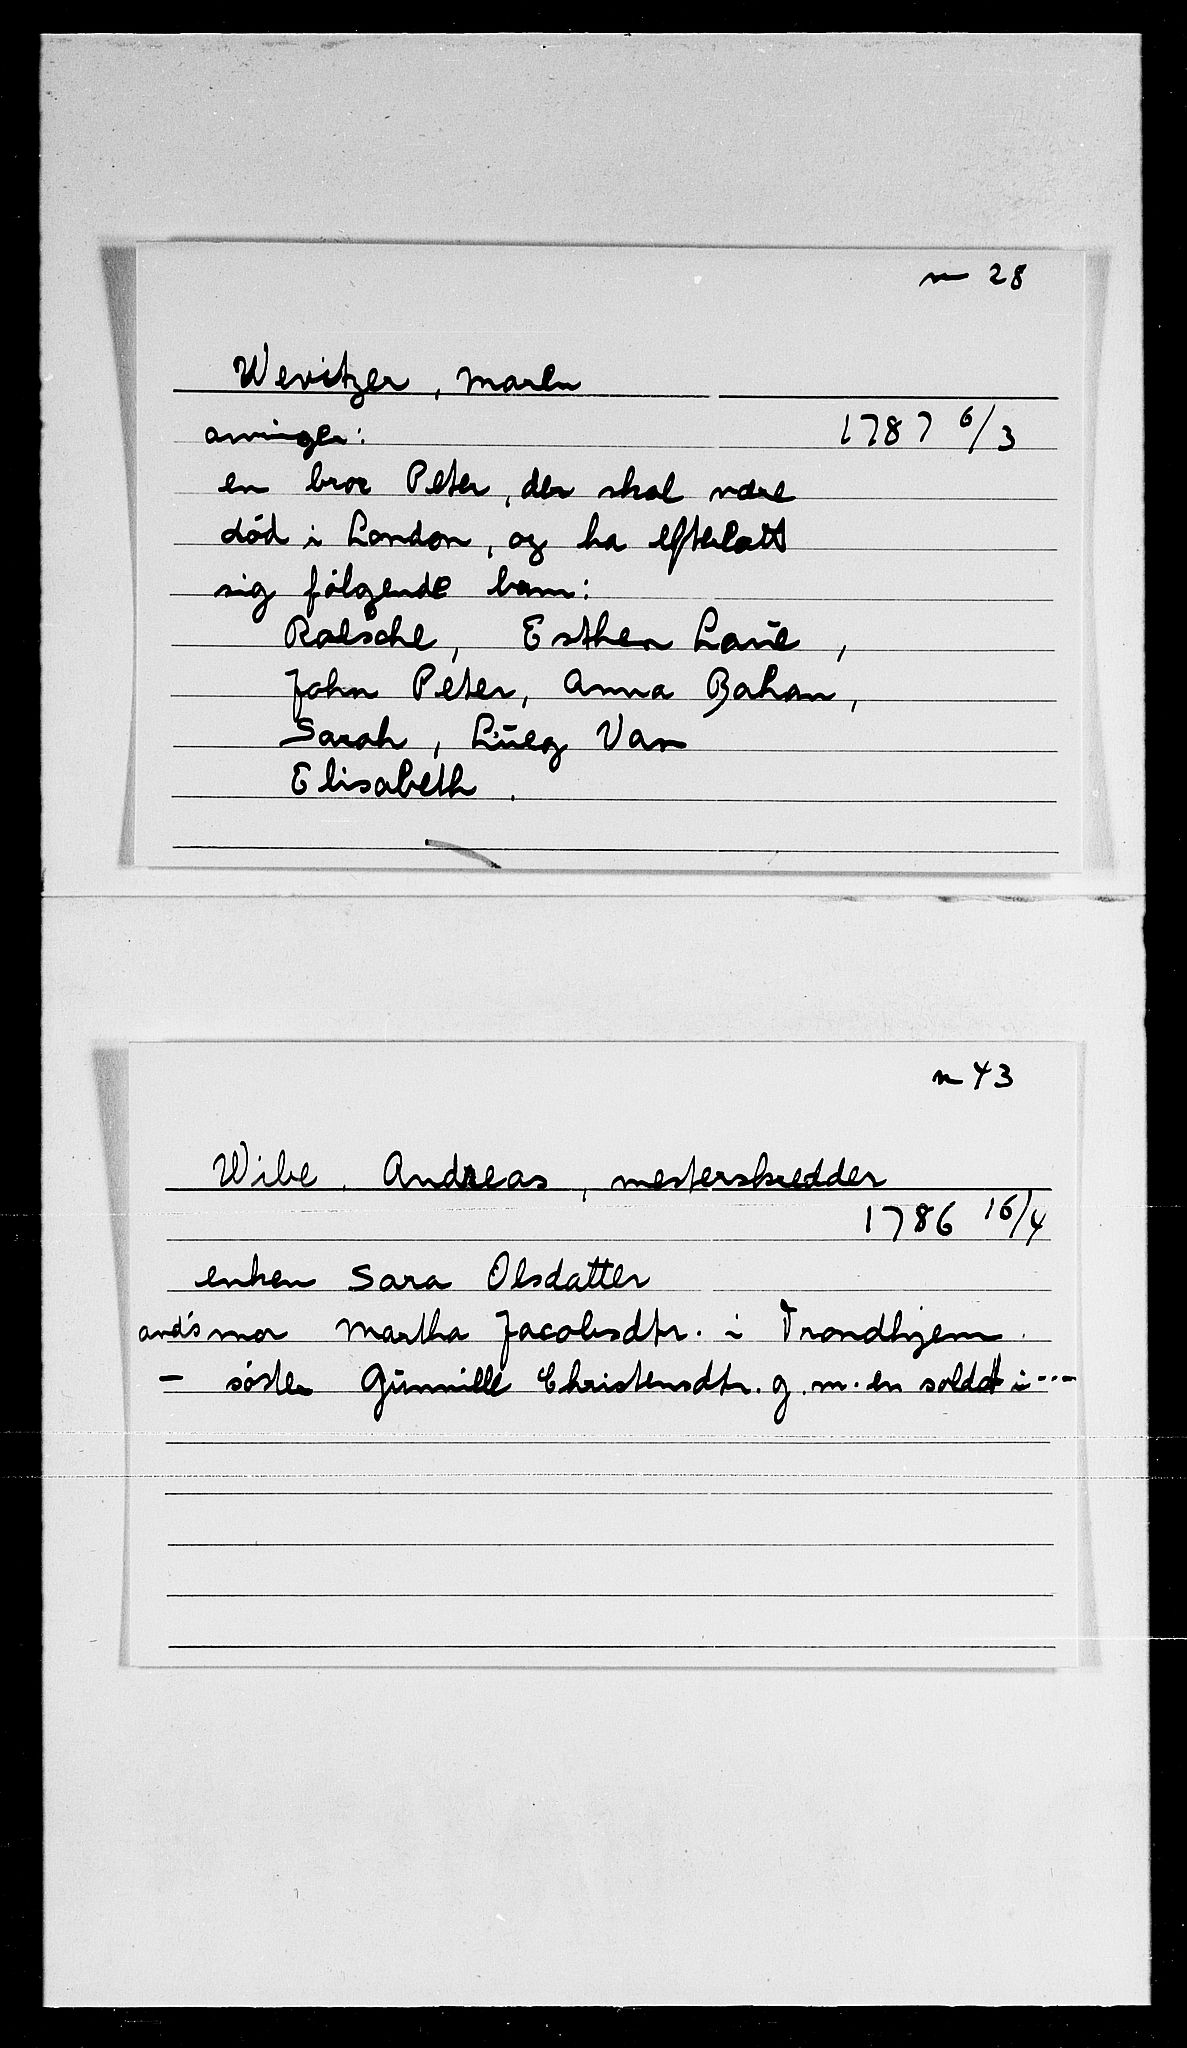 n 28
Wevitzer, Maren
arvinger: 1787 6/3
en bror Peter, der skal være
död i London, og ha efterlatt
sig fölgende barn:
Ralsche, Esther Laue,
John Peter, Anna Bahan,
Sarah, Van
Elisabeth.
n 43
Wibe, Andreas, mesterskredder
1786 16/4
enken Sara Olsdatter
and's mor Martha Jacobsdtr. i Trondhjem.
- söster Gunnille Christensdtr. g. m. en soldat i ---